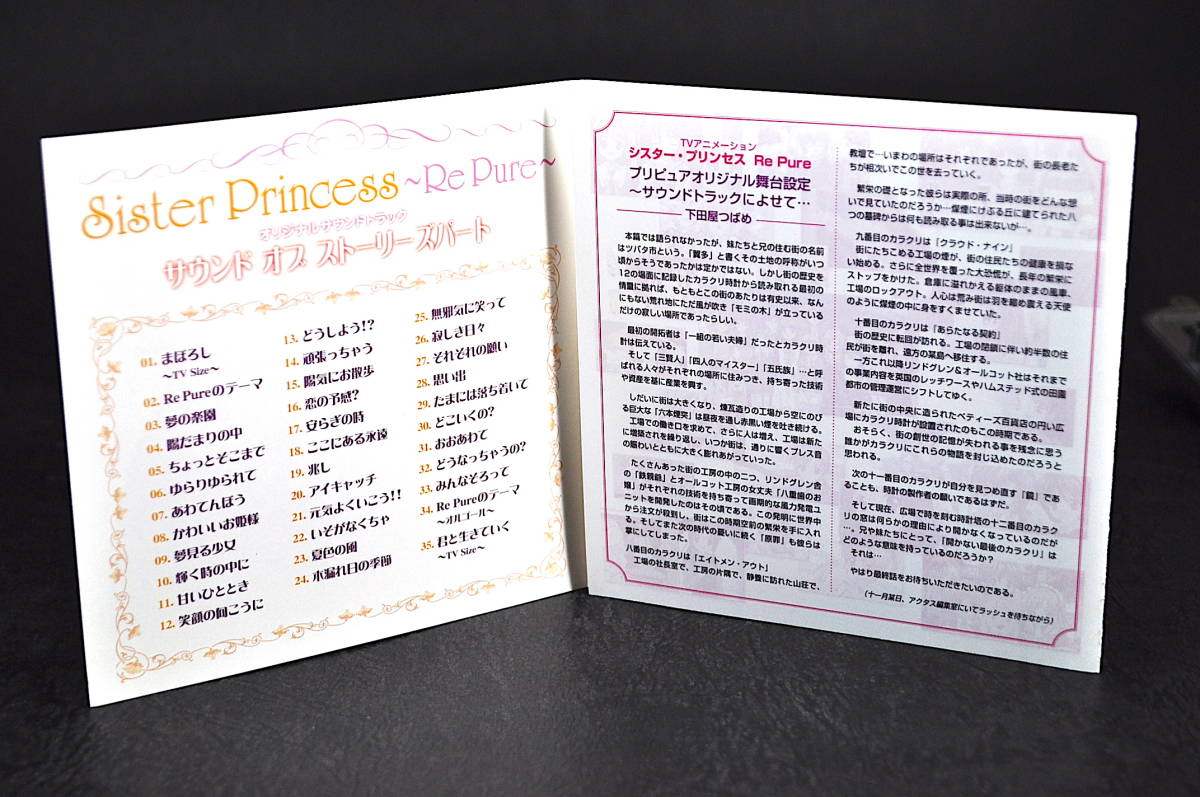 Sister Princess ~Re Pure~
オリジナルサウンドトラック
サウンド オブ ストーリーズパート
01. まぼろし
~TV Size~
02. Re Pureのテーマ
03. 夢の楽園
04. 陽だまりの中
05. ちょっとそこまで
06. ゆらりゆられて
07. あわてんぼう
08. かわいいお姫様
09. 夢見る少女
10. 輝く時の中に
11. 甘いひととき
12. 笑顔の向こうに
13. どうしよう!?
14. 頑張っちゃう
15. 陽気にお散歩
16. 恋の予感?
17. 安らぎの時
18. ここにある永遠
19. 兆し
20. アイキャッチ
21. 元気よくいこう!!
22. いそがなくちゃ
23. 夏色の風
24. 木漏れ日の季節
25. 無邪気に笑って
26. 寂しき日々
27. それぞれの願い
28. 思い出
29. たまには落ち着いて
30. どこいくの?
31. おおあわて
32. どうなっちゃうの?
33. みんなそろって
34. Re Pureのテーマ
~オルゴール~
35. 君と生きていく
~TV Size~
TVアニメーション
シスター・プリンセス Re Pure
プリピュアオリジナル舞台設定
～サウンドトラックによせて…
下田屋つばめ
本篇では語られなかったが、妹たちと兄の住む街の名前
はツバタ市という。「賀多」と書くその土地の呼称がいつ
頃からそうであったかは定かではない。しかし街の歴史を
12の場面に記録したカラクリ時計から読み取れる最初の
情景に拠れば、もともとこの街のあたりは有史以来、なん
にもない荒れ地にただ風が吹き「モミの木」が立っている
だけの寂しい場所であったらしい。
最初の開拓者は「一組の若い夫婦」だったとカラクリ時
計は伝えている。
そして「三賢人」「四人のマイスター」「五氏族」…と呼
ばれる人々がそれぞれの場所に住みつき、持ち寄った技術
や資産を基に産業を興す。
しだいに街は大きくなり、煉瓦造りの工場から空にのび
る巨大な「六本煙突」は昼夜を通し赤黒い煙を吐き続ける。
工場での働き口を求めて、さらに人は増え、工場は新た
に増築されを繰り返し、いつか街は、通りに響くプレス音
の賑わいとともに大きく膨れあがっていった。
たくさんあった街の工房の中の二つ、リンドグレン舎
の「鉄親爺」とオールコット工房の女丈夫「八重歯のお
嬢」がそれぞれの技術を持ち寄って画期的な風力発電ユ
ニットを開発したのはその頃である。この発明に世界中
から注文が殺到し、街はこの時期空前の繁栄を手に入れ
る。そしてまた次の時代の憂いに続く「原罪」も彼らは
掌にしてしまう。
八番目のカラクリは「エイトメン・アウト」
工場の社長室で、工房の片隅で、静養に訪れた山荘で、
教壇で…いまわの場所はそれぞれであったが、街の長老た
ちが相次いでこの世を去っていく。
繁栄の礎となった彼らは実際の所、当時の街をどんな想
いで見ていたのだろうか…煤煙にけぶる丘に建てられた八
つの墓碑からは何も読み取る事は出来ないが…。
九番目のカラクリは「クラウド・ナイン」
街にたちこめる工場の煙が、街の住民たちの健康を損な
い始める。さらに全世界を覆った大恐慌が、長年の繁栄に
ストップをかけた。倉庫に溢れかえる躯体のままの風車、
工場のロックアウト。人心は荒み街は羽を縮め震える天使
のように煤煙の中に身をすくませていた。
十番目のカラクリは「あらたなる契約」
街の歴史に転回が訪れる。工場の閉鎖に伴い約半数の住
民が街を離れ、遠方の某島へ移住する。
一方これ以降リンドグレン&オールコット社はそれまで
の事業内容を英国のレッチワースやハムステッド式の田園
都市の管理運営にシフトしてゆく。
新たに街の中央に造られたベティーズ百貨店の円い広
場にカラクリ時計が設置されたのもこの時期である。
おそらく、街の創世の記憶が失われる事を残念に思う
誰かがカラクリにこれらの物語を封じ込めたのだろうと
思われる。
次の十一番目のカラクリが自分を見つめ直す「鏡」であ
ることも、時計の製作者の願いであるはずだ。
そして現在、広場で時を刻む時計塔の十二番目のカラク
リの窓は何らかの理由により開かなくなっているのだが
…。兄や妹たちにとって、「開かない最後のカラクリ」は
どのような意味を持っているのだろうか?
それは…
やはり最終話をお待ちいただきたいのである。
(十一月某日、アクタス編集室にいてラッシュを待ちながら)